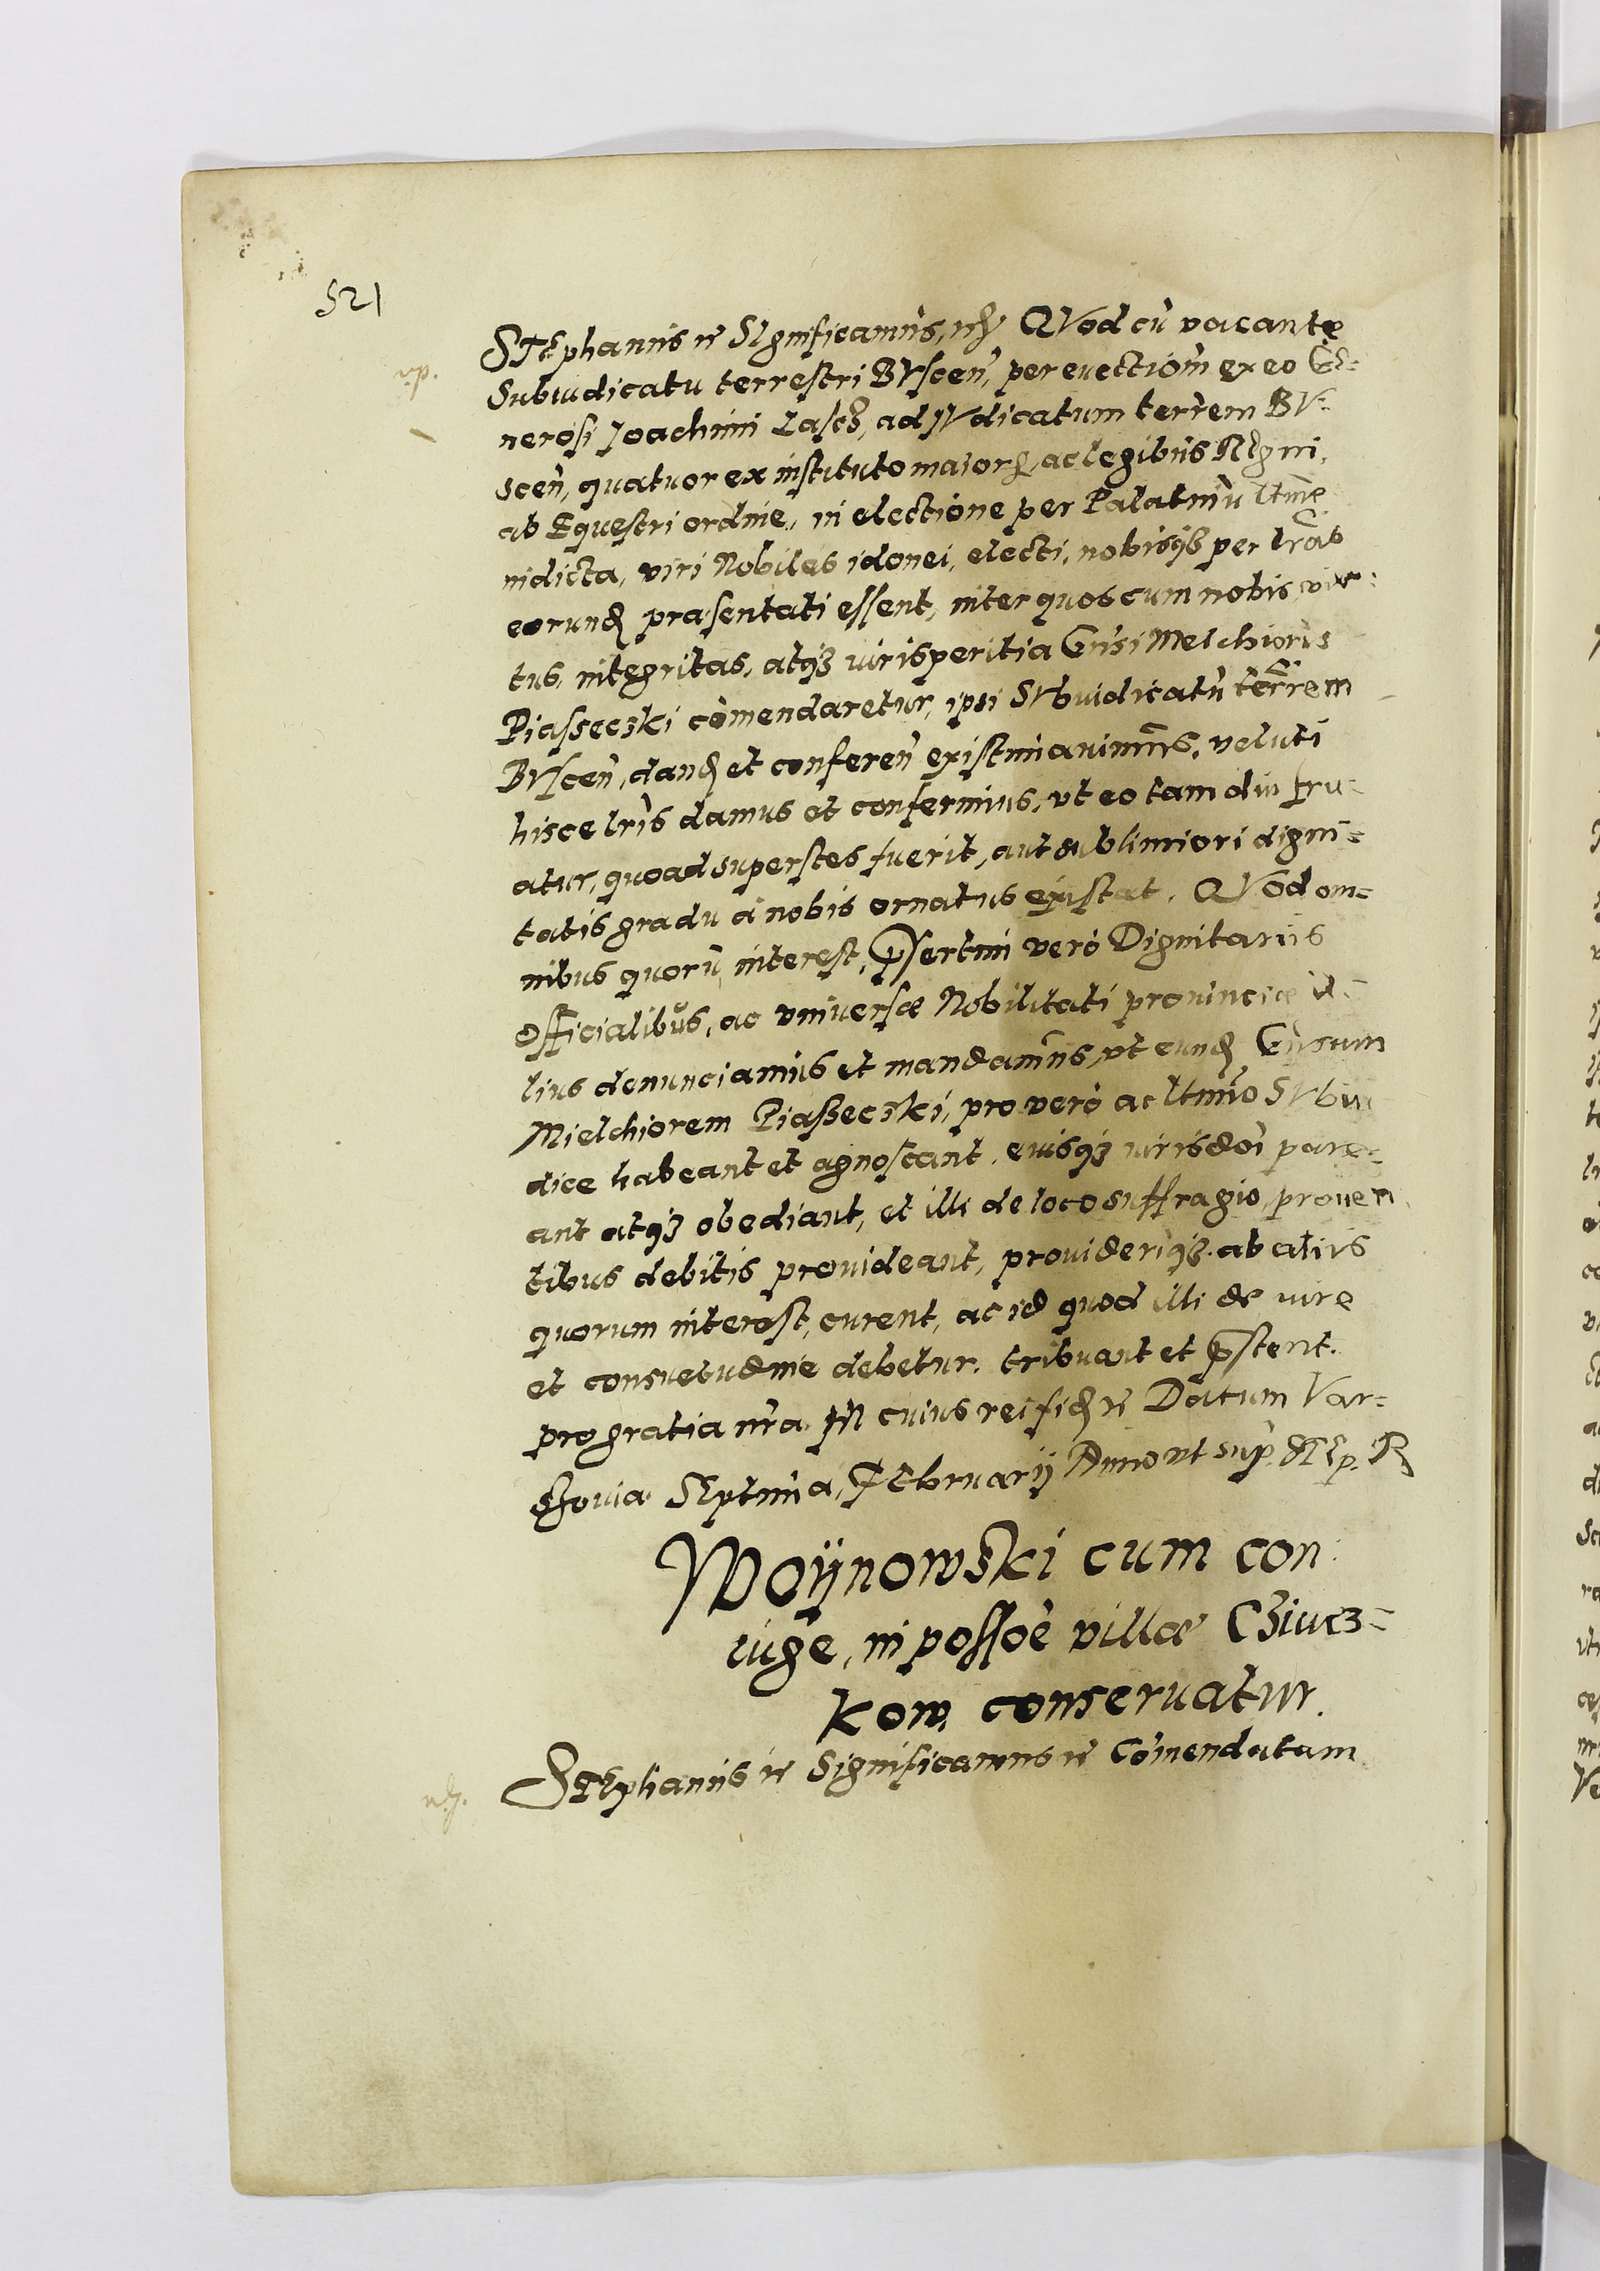 521
STEphanus etc Significamus, etc QVod cū vacante
Subiudicatu terrestri BVscen̄, per euectiom̄ ex eo Ge-
nerosi Joachimi Lascz, ad IVdicatum terrem BV-
scen̄, quatuor ex instituto maiorꝝ, ac legibus REgni,
ab Equestri ordine, in electione per Palatinū ltme
indicta, viri Nobiles idonei, electi, nobisqꝫ per lr̄as
eorundꝫ præsentati essent, inter quos cum nobis, vir-
tus, integritas, atqꝫ iurisperitia Gn̄si Melchioris
Piasseczki com̄endaretur, ipsi SVbiudicatū terrem
BVscen̄, dandꝫ et conferen̄ existimauimus, veluti
hisce lr̄is damus et conferimus, vt eo tam diu fru-
atur, quoad superstes fuerit, aut sublimiori digni-
tatis gradu à nobis ornatus existat. QVod om-
nibus quorū interest, p̄sertim verò Dignitariis
Officialibus, ac vniuersæ Nobilitati prouinciæ il-
lius denunciamus et mandamus, vt eundꝫ Gn̄sum
Mielchiorem Piaßeczki, pro vero ac ltimo SVbiu
dice habeant et agnoscant, eiusqꝫ iurisdoi pare-
ant atqꝫ obediant, et illi de loco suffragio, prouen
tibus debitis prouideant, prouideriqꝫ ab aliis
quorum interest, curent, ac id quod illi de iure
et consuetudine debetur, tribuant et p̄stent.
pro gratia nr̄a. IN cuius rei fidꝫ etc Datum Var-
schouiæ SEptima, FEbruarij Anno vt sup̄. STEp. R
Woÿnowski cum con
iuge, in possoē villæ Cziucz-
kow, conseruatur.
STEphanus etc Significamus etc Com̄endatam